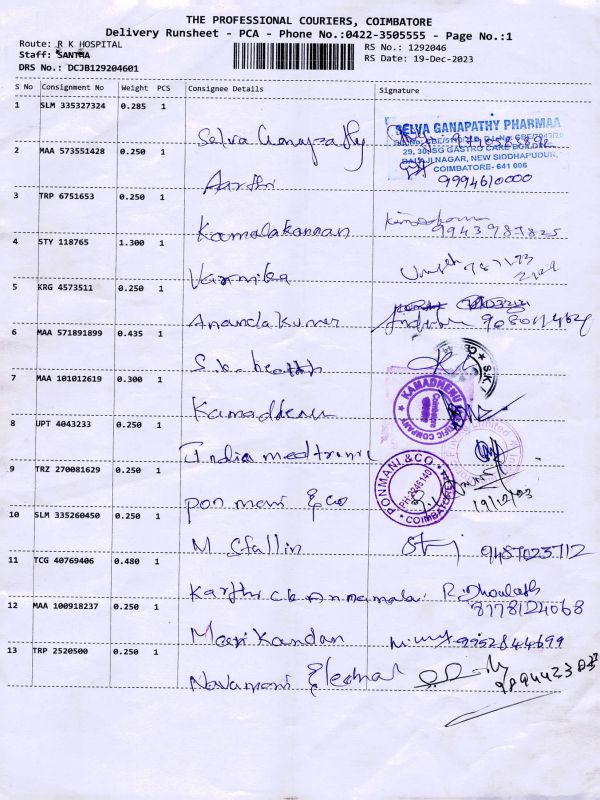 THE PROFESSIONAL COURIERS, COIMBATORE
Delivery Runsheet - PCA - Phone No.:0422-3505555 - Page No.:1
Route: R K HOSPITAL
Staff: SANTHA
DRS No.: DCJB129204601
RS No.: 1292046
RS Date: 19-Dec-2023
S No Consignment No Weight PCS Consignee Details Signature
1 SLM 335327324 0.285 1 Selva Ganapathy
SELVA GANAPATHY PHARMAA
29, 30, SG GASTRO CARE BUILDING
BALAJI NAGAR, NEW SIDDHAPUDUR,
COIMBATORE- 641 006
2 MAA 573551428 0.250 1 Aarthi 9994610000
3 TRP 6751653 0.250 1 Kamalakannan 9943987825
4 STY 118765 1.300 1 Varnika
5 KRG 4573511 0.250 1 Ananda kumar
6 MAA 571891899 0.435 1 S.k. health
S.K.
7 MAA 101012619 0.300 1 Kamadhenu
KAMADHENU
8 UPT 4043233 0.250 1 India medtronic
9 TRZ 270081629 0.250 1 Ponmani & co
PONMANI & CO
COIMBATORE
19/12/23
10 SLM 335260450 0.250 1 M Stallin 9487023712
11 TCG 40769406 0.480 1 Karthick Annamalai 8778124068
12 MAA 100918237 0.250 1 Manikandan 9952844699
13 TRP 2520500 0.250 1 Navamani Electrical